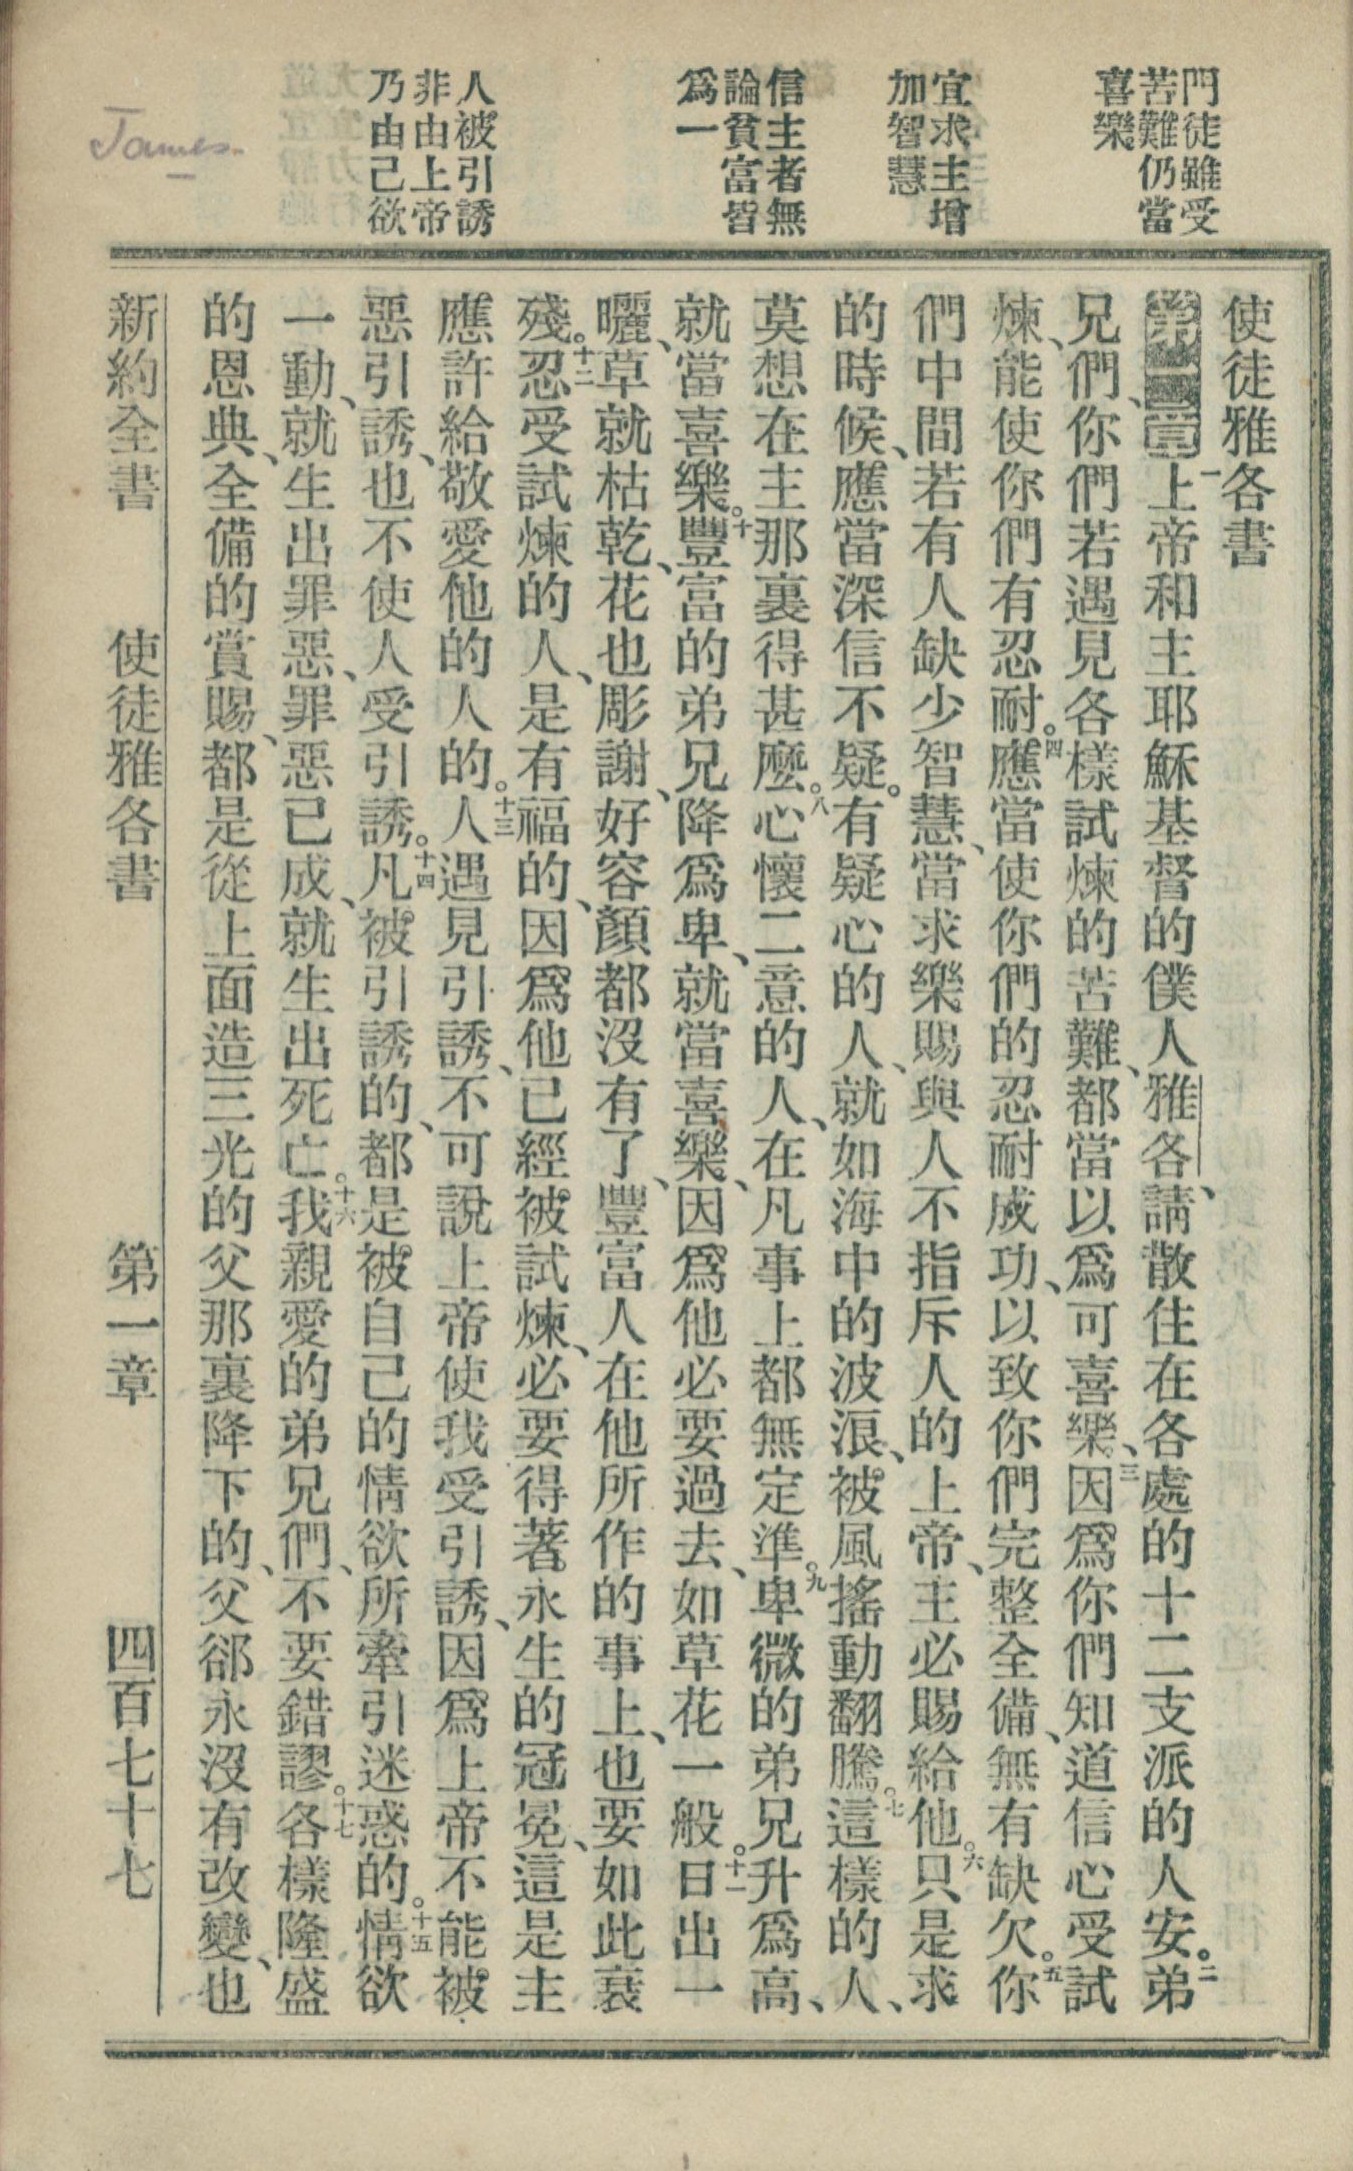 門徒雖受
苦難仍當
喜樂
宜求主增
加智慧
信主者無
論貧富皆
爲一
人被引誘
非由上帝
乃由己欲
James.
使徒雅各書
第一章一上帝和主耶穌基督的僕人雅各、請散住在各處的十二支派的人安。二弟
兄們、你們若遇見各樣試煉的苦難、都當以爲可喜樂、三因爲你們知道信心受試
煉、能使你們有忍耐。四應當使你們的忍耐成功、以致你們完整全備、無有缺欠。五你
們中間若有人缺少智慧、當求樂賜與人不指斥人的上帝、主必賜給他。六只是求
的時候、應當深信不疑。有疑心的人、就如海中的波浪、被風搖動翻騰。七這樣的人、
莫想在主那裏得甚麼。八心懷二意的人、在凡事上都無定準。九卑微的弟兄升爲高、
就當喜樂。十豐富的弟兄降爲卑、就當喜樂、因爲他必要過去、如草花一般。十一日出一
曬、草就枯乾、花也彫謝、好容顏都沒有了、豐富人在他所作的事上、也要如此衰
殘。十二忍受試煉的人、是有福的、因爲他已經被試煉、必要得著永生的冠冕、這是主
應許給敬愛他的人的。十三人遇見引誘、不可說上帝使我受引誘、因爲上帝不能被
惡引誘、也不使人受引誘。十四凡被引誘的、都是被自己的情欲所牽引迷惑的。十五情欲
一動、就生出罪惡、罪惡已成、就生出死亡。十六我親愛的弟兄們、不要錯謬。十七各樣隆盛
的恩典、全備的賞賜、都是從上面造三光的父那裏降下的、父郤永沒有改變、也
新約全書 使徒雅各書 第一章 四百七十七